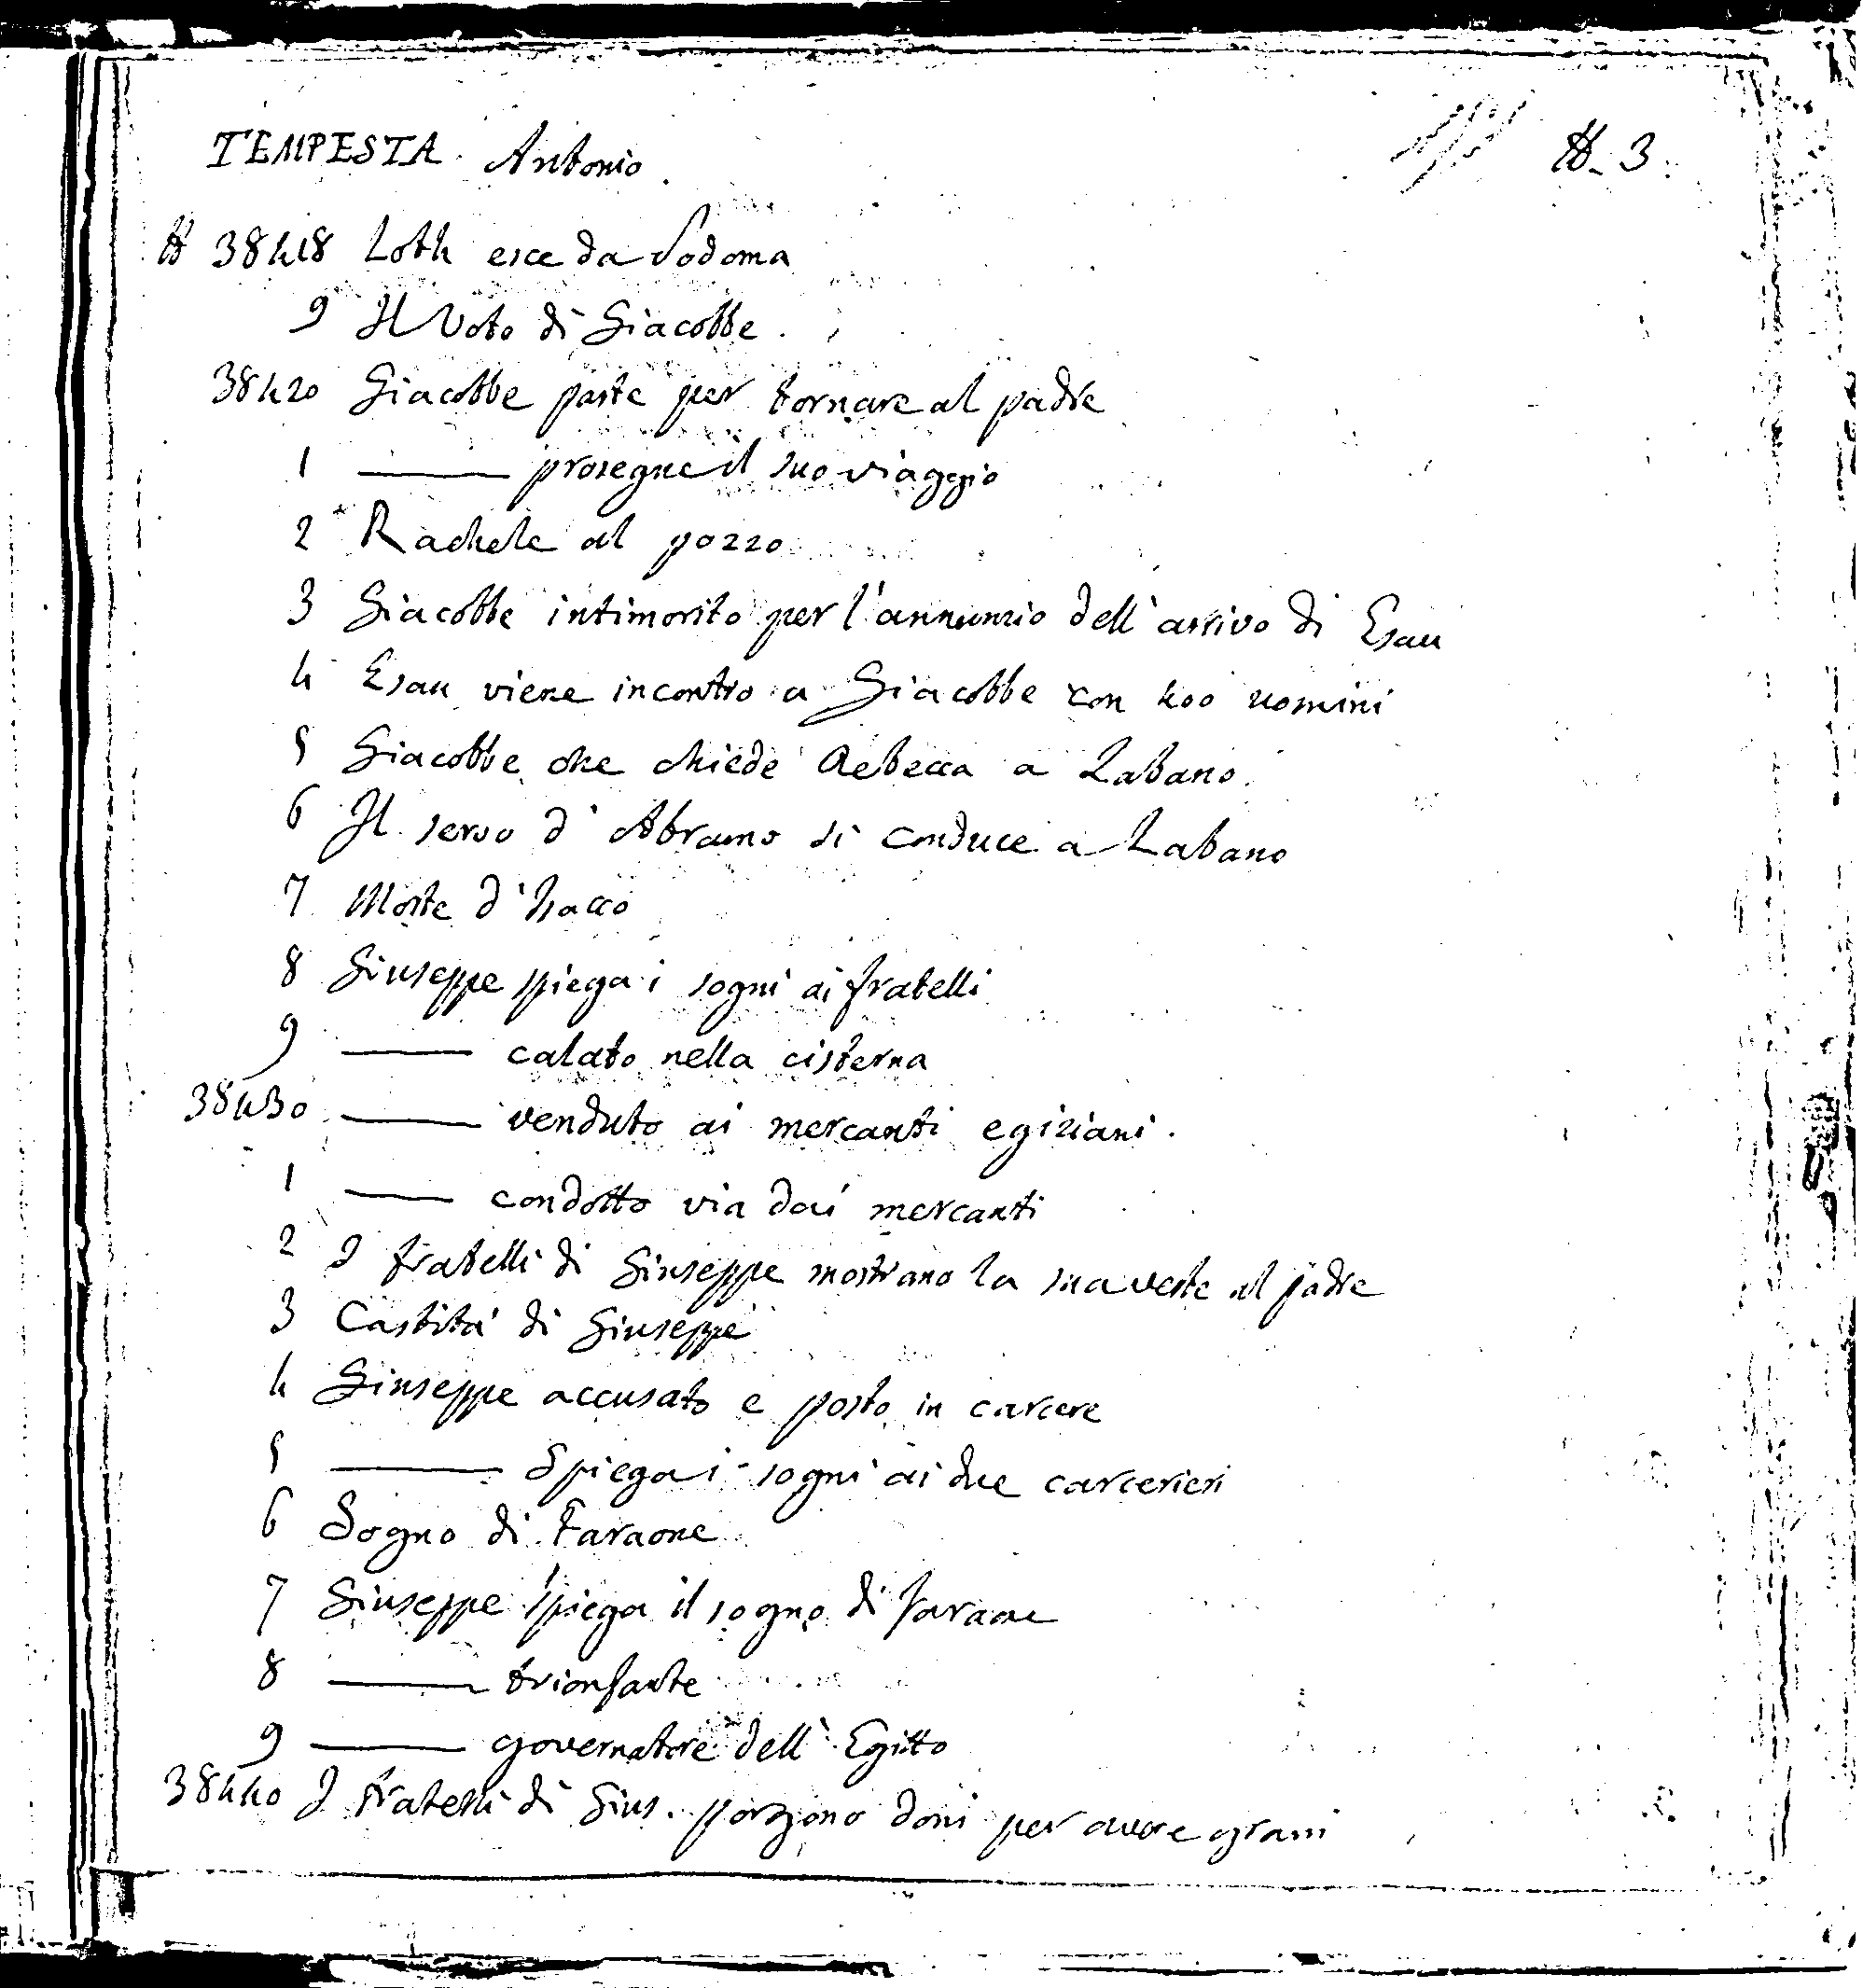 TEMPESTA Antonio. 3.
38418 Loth esce da Sodoma
9 Il Voto di Giacobbe.
38420 Giacobbe parte per tornare al padre
1 —— prosegue il suo viaggio
2 Rachele al pozzo
3 Giacobbe intimorito per l'annunzio dell'arrivo di Esau
4 Esau viene incontro a Giacobbe con 400 uomini
5 Giacobbe che chiede Rebecca a Labano.
6 Il servo d'Abramo si conduce a Labano
7 Morte d'Isacco
8 Giuseppe spiega i sogni ai fratelli
9 —— calato nella cisterna
38430 —— venduto ai mercanti egiziani.
1 —— condotto via dai mercanti
2 I fratelli di Giuseppe mostrano la sua veste al padre
3 Castità di Giuseppe
4 Giuseppe accusato e posto in carcere
5 —— Spiega i sogni ai due carcerieri
6 Sogno di Faraone
7 Giuseppe spiega il sogno di faraone
8 —— trionfante
9 —— governatore dell'Egitto
38440 I fratelli di Gius. porgono doni per avere grani